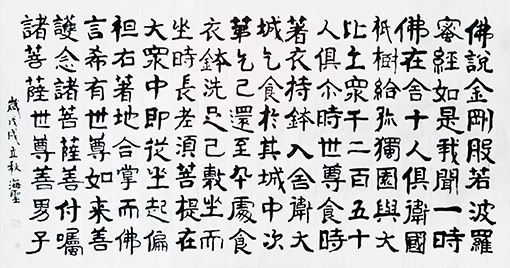 佛說金剛般若波羅
蜜經如是我聞一時
佛在舍十人俱衛國
祇樹給孤獨園與大
比丘眾千二百五十
人俱尒時世尊食時
著衣持鉢入舍衛大
城乞食於其城中次
第乞已還至本處食
衣鉢洗足已敷坐而
坐時長老須菩提在
大眾中即從坐起偏
袒右著地合掌而佛
言希有世尊如來善
護念諸菩薩善付囑
諸菩薩世尊善男子
歲戊戌立秋海